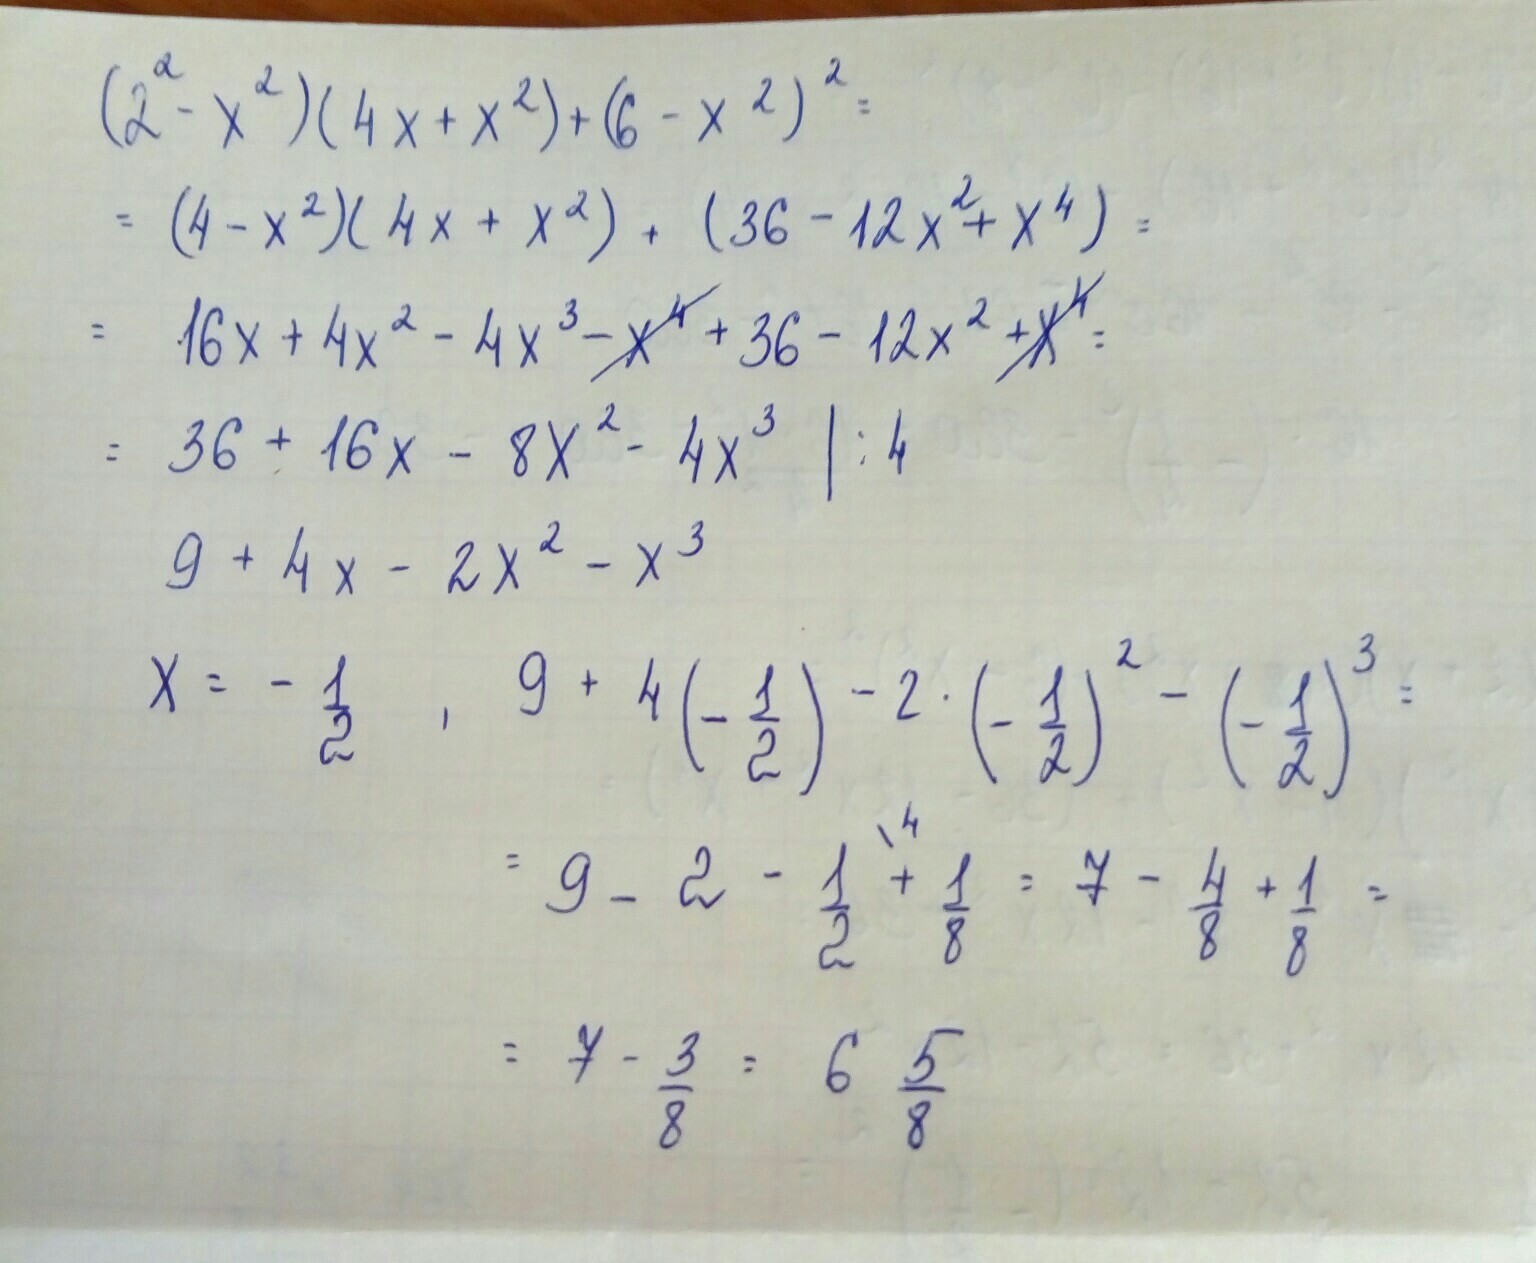 (2² - x²)(4x + x²) + (6 - x²)² =
= (4 - x²)(4x + x²) + (36 - 12x² + x⁴) =
= 16x + 4x² - 4x³ - x⁴ + 36 - 12x² + x⁴ =
= 36 + 16x - 8x² - 4x³ | : 4
9 + 4x - 2x² - x³
x = - 1/2 , 9 + 4(- 1/2) - 2 · (- 1/2)² - (- 1/2)³ =
= 9 - 2 - 1/2 \4 + 1/8 = 7 - 4/8 + 1/8 =
= 7 - 3/8 = 6 5/8